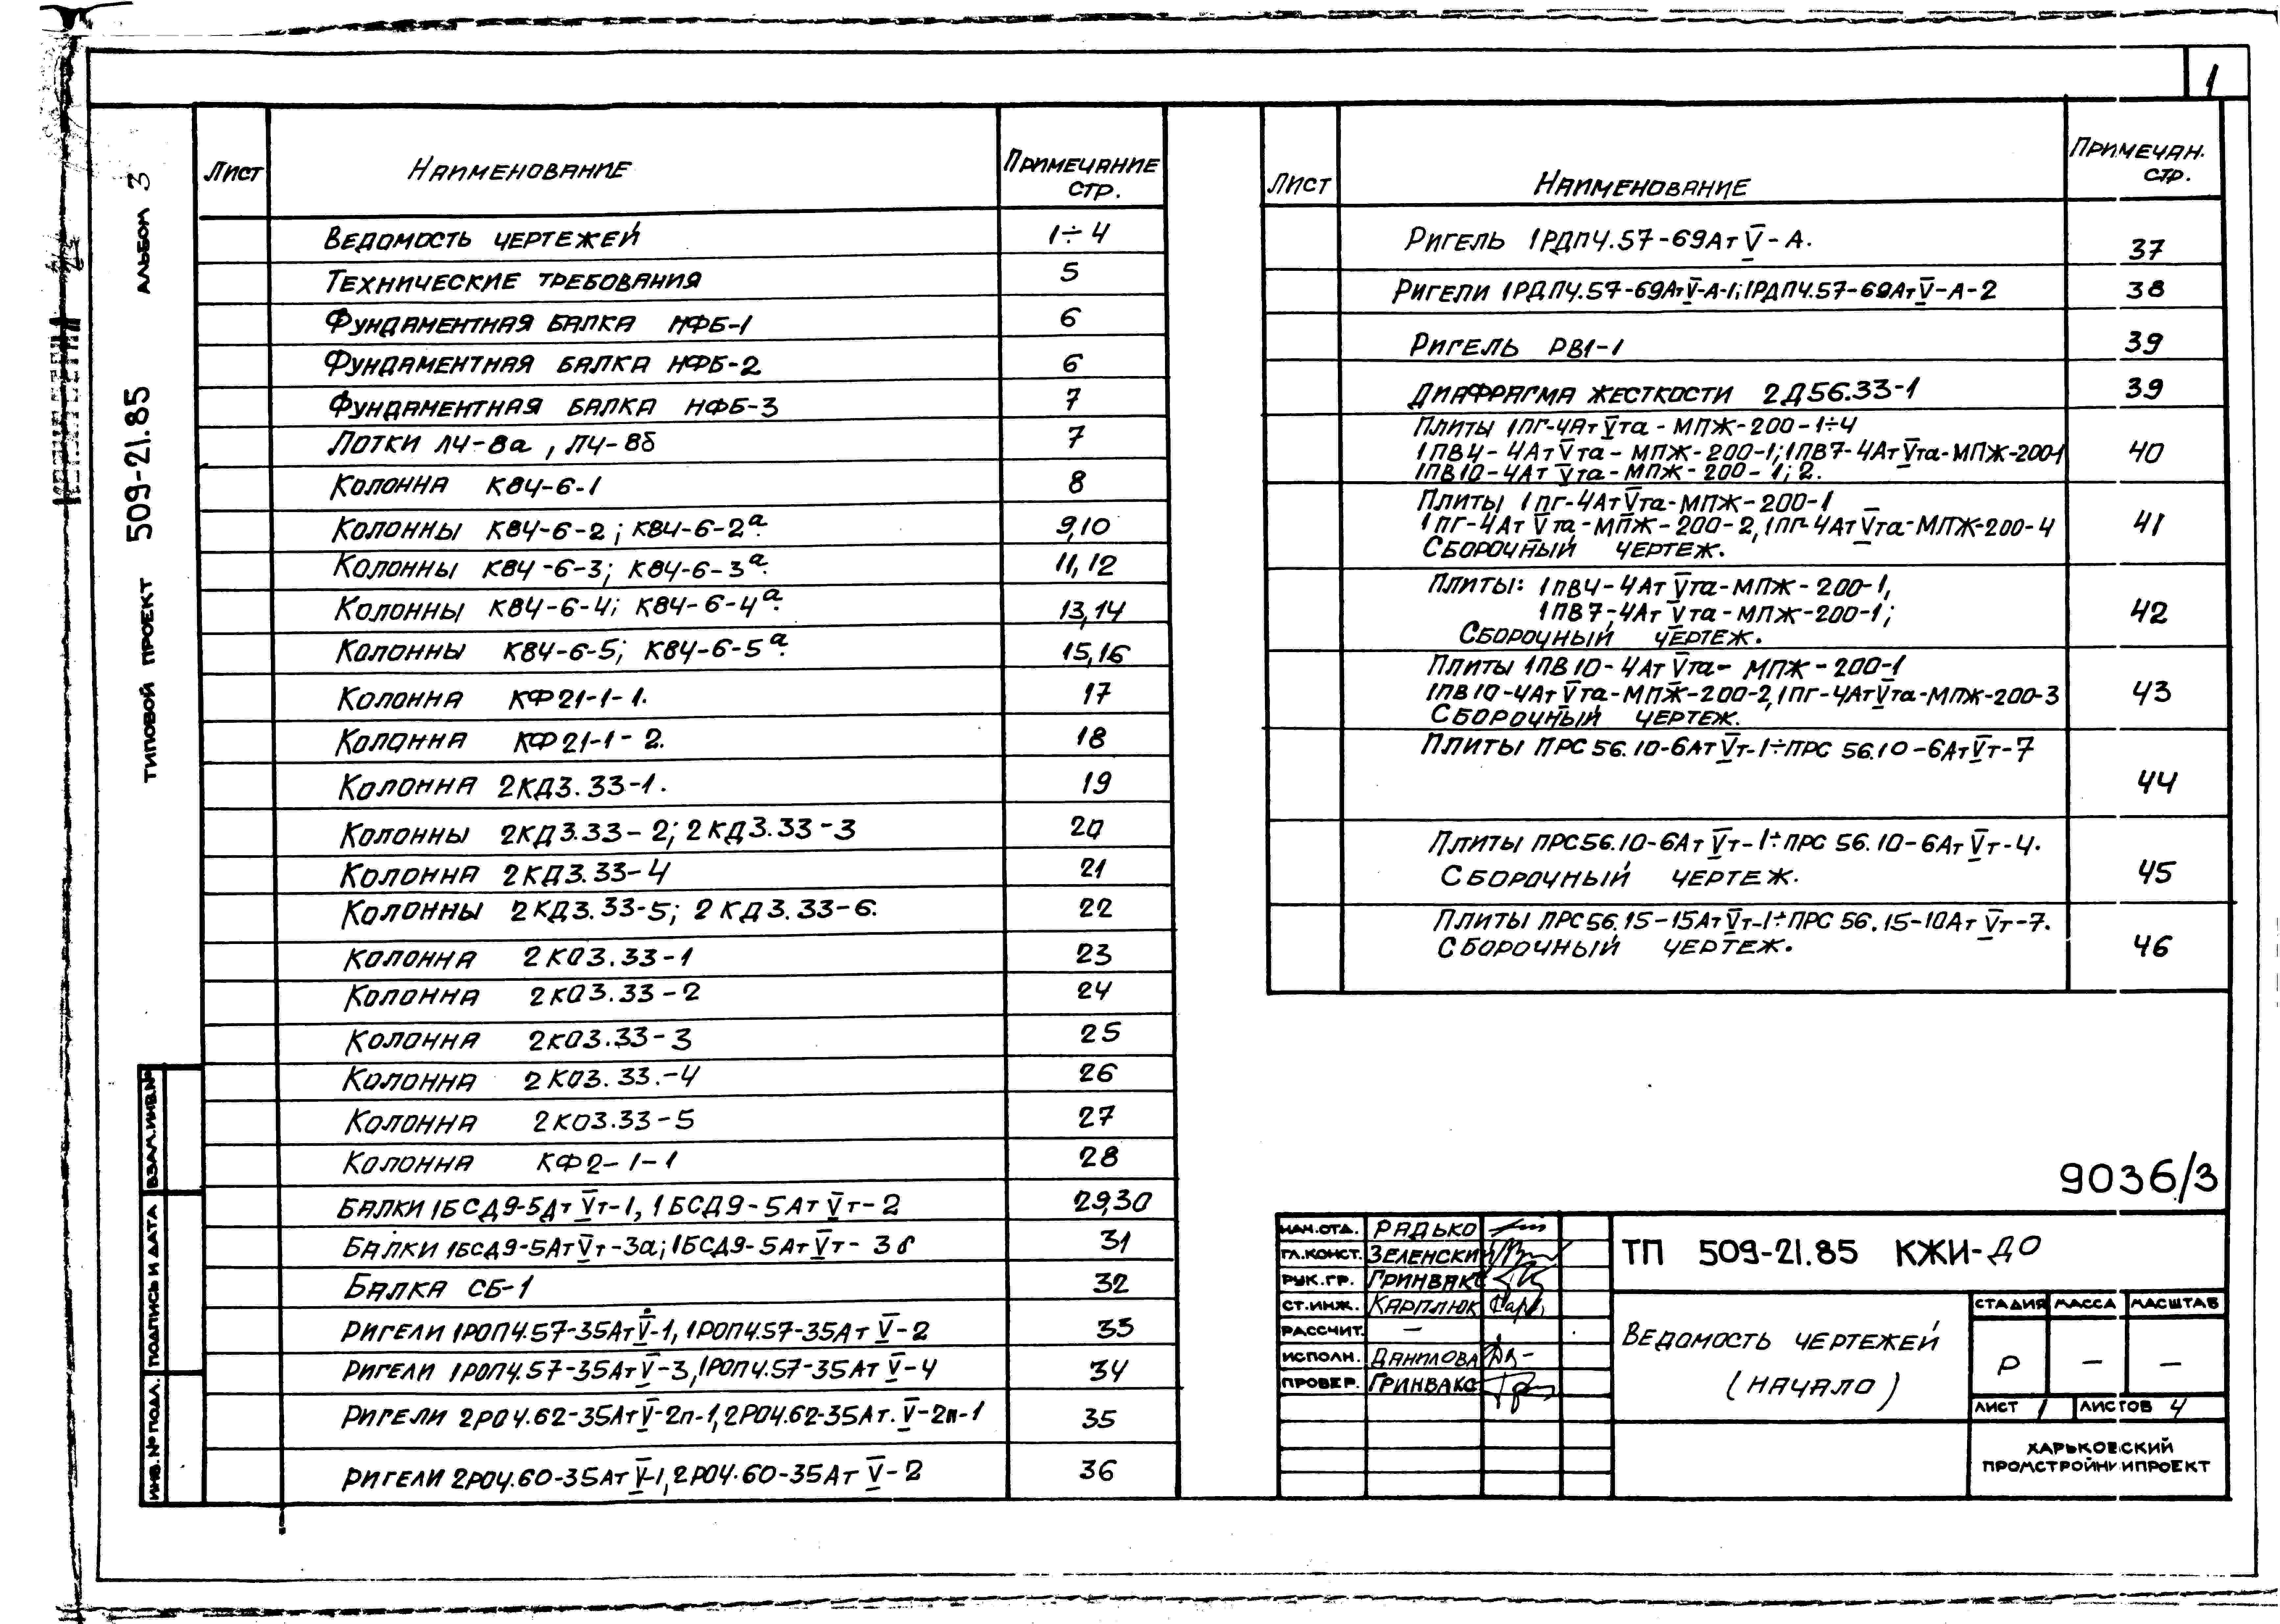 1
ТИПОВОЙ ПРОЕКТ 509-21.85 АЛЬБОМ 3
Лист Наименование Примечание стр.
Ведомость чертежей 1÷4
Технические требования 5
Фундаментная балка НФБ-1 6
Фундаментная балка НФБ-2 6
Фундаментная балка НФБ-3 7
Лотки Л4-8а, Л4-8б 7
Колонна КВ4-6-1 8
Колонны КВ4-6-2; КВ4-6-2а. 9,10
Колонны КВ4-6-3; КВ4-6-3а. 11,12
Колонны КВ4-6-4; КВ4-6-4а. 13,14
Колонны КВ4-6-5; КВ4-6-5а. 15,16
Колонна КФ21-1-1. 17
Колонна КФ21-1-2. 18
Колонна 2КД3.33-1. 19
Колонны 2КД3.33-2; 2КД3.33-3 20
Колонна 2КД3.33-4 21
Колонны 2КД3.33-5; 2КД3.33-6. 22
Колонна 2КО3.33-1 23
Колонна 2КО3.33-2 24
Колонна 2КО3.33-3 25
Колонна 2КО3.33.-4 26
Колонна 2КО3.33-5 27
Колонна КФ2-1-1 28
Балки 1БСД9-5Ат V т-1, 1БСД9-5Ат V т-2 29,30
Балки 1БСД9-5Ат V т-3а; 1БСД9-5Ат V т-3б 31
Балка СБ-1 32
Ригели 1РОП4.57-35Ат V-1, 1РОП4.57-35Ат V-2 33
Ригели 1РОП4.57-35Ат V-3, 1РОП4.57-35Ат V-4 34
Ригели 2РО4.62-35Ат V-2п-1, 2РО4.62-35Ат. V-2п-1 35
Ригели 2РО4.60-35Ат V-1, 2РО4.60-35Ат V-2 36
Лист Наименование Примечан. стр.
Ригель 1РДП4.57-69Ат V-А. 37
Ригели 1РДП4.57-69Ат V-А-1; 1РДП4.57-69Ат V-А-2 38
Ригель РВ1-1 39
Диафрагма жесткости 2Д56.33-1 39
Плиты 1ПГ-4Ат V та-МПЖ-200-1÷4
1ПВ4-4Ат V та-МПЖ-200-1; 1ПВ7-4Ат V та-МПЖ-200-1 40
1ПВ10-4Ат V та-МПЖ-200-1; 2.
Плиты 1ПГ-4Ат V та-МПЖ-200-1
1ПГ-4Ат V та-МПЖ-200-2, 1ПГ-4Ат V та-МПЖ-200-4 41
Сборочный чертеж.
Плиты: 1ПВ4-4Ат V та-МПЖ-200-1,
1ПВ7-4Ат V та-МПЖ-200-1; 42
Сборочный чертеж.
Плиты 1ПВ10-4Ат V та-МПЖ-200-1
1ПВ10-4Ат V та-МПЖ-200-2, 1ПГ-4Ат V та-МПЖ-200-3 43
Сборочный чертеж.
Плиты ПРС 56.10-6Ат V т-1÷ПРС 56.10-6Ат V т-7
44
Плиты ПРС56.10-6Ат V т-1÷ПРС 56.10-6Ат V т-4.
Сборочный чертеж. 45
Плиты ПРС56.15-15Ат V т-1÷ПРС 56.15-10Ат V т-7.
Сборочный чертеж. 46
9036/3
НАЧ.ОТД. Радько
ГЛ.КОНСТ. Зеленский
РУК.ГР. Гринвакс
СТ.ИНЖ. Карплюк
РАССЧИТ. —
ИСПОЛН. Данилова
ПРОВЕР. Гринвакс
ТП 509-21.85 КЖИ-ДО
Ведомость чертежей
(начало)
СТАДИЯ МАССА МАСШТАБ
Р — —
ЛИСТ 1 ЛИСТОВ 4
ХАРЬКОВСКИЙ
ПРОМСТРОЙНИИПРОЕКТ
ИНВ.№ПОДЛ. ПОДПИСЬ И ДАТА ВЗАМ.ИНВ.№